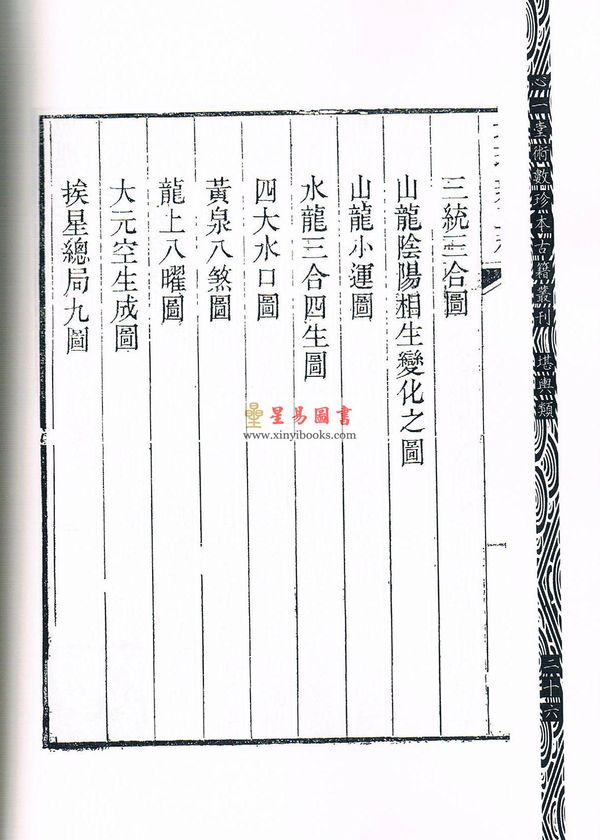 心一堂術數珍本古籍叢刊 堪輿類
二十六
三統三合圖
山龍陰陽相生變化之圖
山龍小運圖
水龍三合四生圖
四大水口圖
黃泉八煞圖
龍上八曜圖
大元空生成圖
挨星總局九圖
一
星易圖書
www.xinyibooks.com